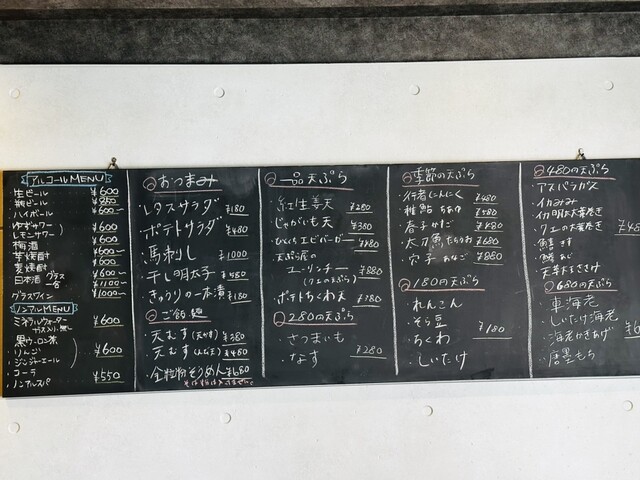 アルコールMENU
・生ビール ¥600
・瓶ビール ¥850
・ハイボール ¥600~
・ゆずサワー ¥600
・レモンサワー
・梅酒 ¥600
・芋焼酎 ¥600~
・麦焼酎 ¥600~
・日本酒 グラス ¥600~
一合 ¥1100~
グラスワイン ¥1000~
ノンアルMENU
・ミネラルウォーター ¥600
ガス入り、無し
・黒ウーロン茶
・りんご ¥600
・ジンジャーエール
・コーラ ¥550
・ノンアルスパ
おつまみ
・レタスサラダ ¥180
・ポテトサラダ ¥480
・馬刺し ¥1000
・干し明太子 ¥580
・きゅうりの一本漬 ¥180
ご飯、麺
・天むす(天かす) ¥380
・天むす ¥480
・全粒粉そうめん ¥680
一品天ぷら
・紅生姜天 ¥280
・じゃがいも天 ¥380
・エビバーガー ¥480
・天ぷら屋の
エーリンチー ¥880
(クエの天ぷら)
・ポテトちくわ天 ¥380
280の天ぷら
・さつまいも
・なす ¥280
季節の天ぷら
・行者にんにく ¥480
・稚鮎 ちあゆ ¥580
・春子 かすご ¥480
・太刀魚 たちうお ¥680
・穴子 あなご ¥880
180の天ぷら
・れんこん
・そら豆
・ちくわ ¥180
・しいたけ
480の天ぷら
・アスパラガス
・イカみみ
・イカ明太大葉巻き
・クエの大葉巻き
・鱚 きす
・天草大きさげ
680の天ぷら
・車海老
・しいたけ海老
・海老かきあげ
・唐墨もち